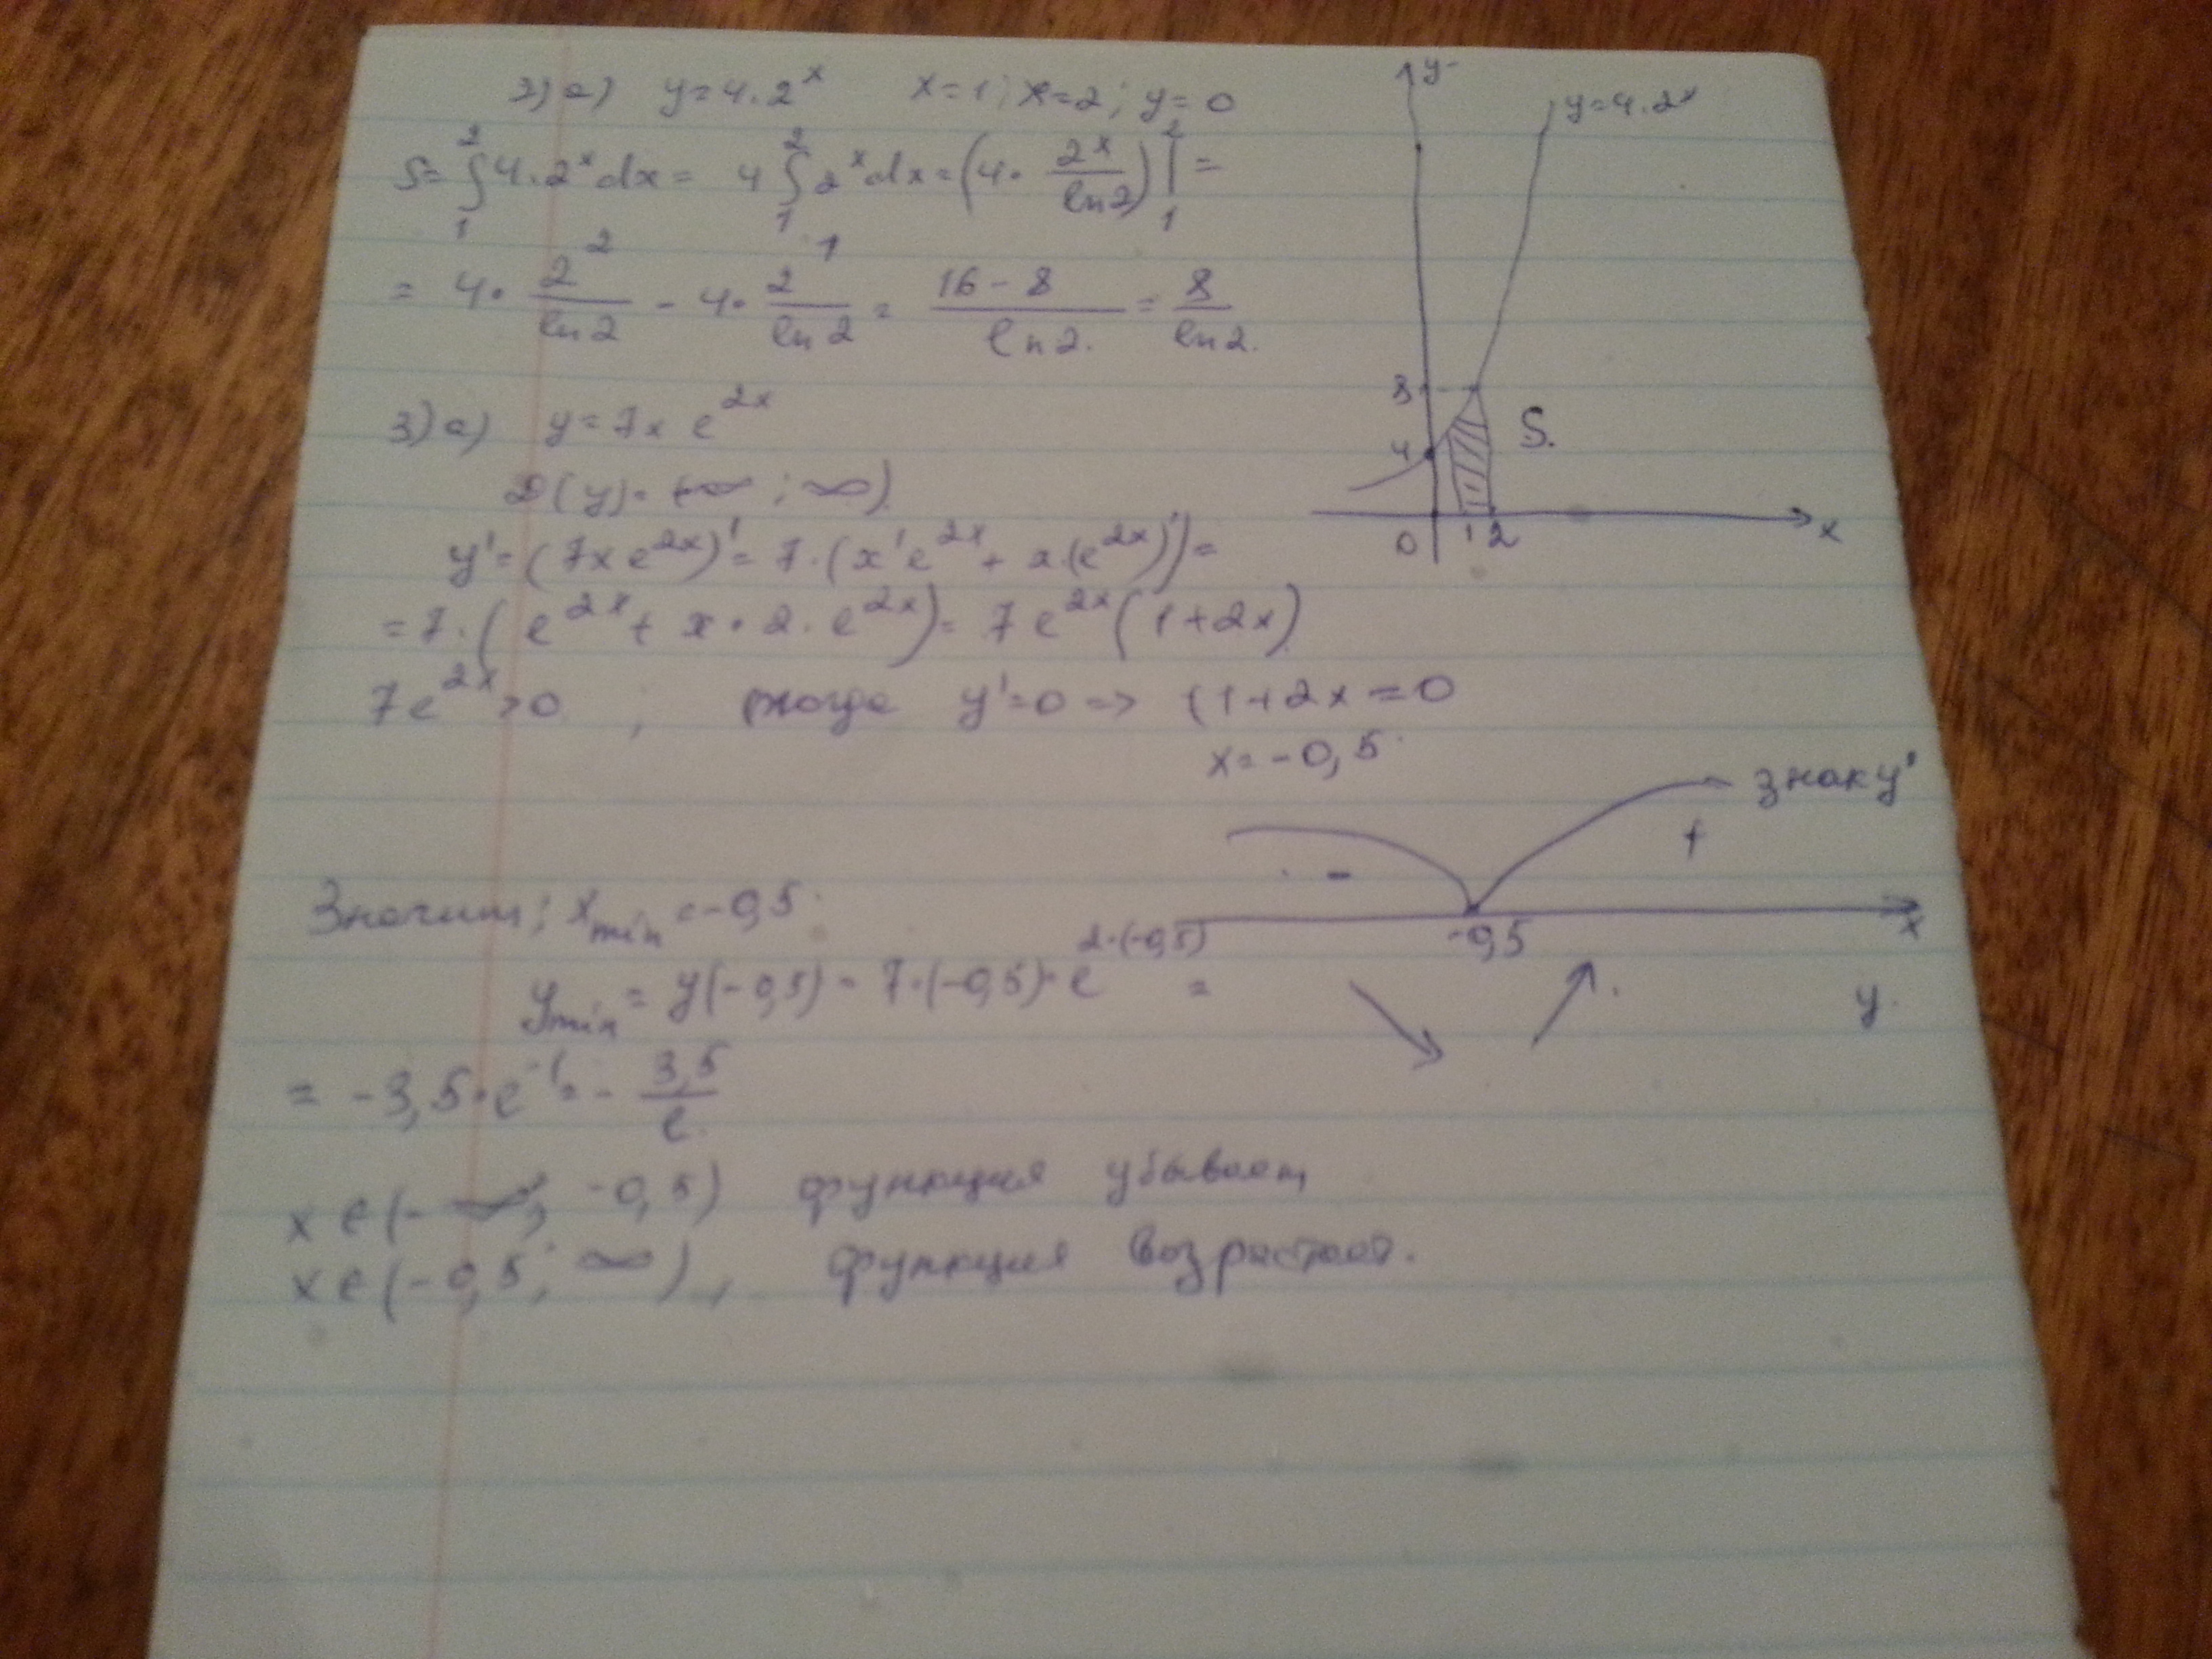 3) а) y=4·2^x x=1; x=2; y=0
S= ∫₁² 4·2^x dx = 4 ∫₁² 2^x dx = (4· 2^x/ln2)|₁² =
= 4· 2^2/ln2 - 4· 2^1/ln2 = (16-8)/ln2. = 8/ln2.
y
y=4·2^x
8
4
S.
0 1 2 x
3) а) y=7x e^{2x}
D(y)= (-∞; ∞)
y'=(7x e^{2x})'= 7·(x'e^{2x} + x·(e^{2x})')=
=7·( e^{2x} + x·2·e^{2x})= 7e^{2x}(1+2x)
7e^{2x}>0, тогда y'=0 => (1+2x=0
x=-0,5
знак y'
- +
-0,5 x
y.
Значит; x_min =-0,5.
y_min = y(-0,5) = 7·(-0,5)·e^{2·(-0,5)} =
= -3,5·e^{-1} = - 3,5/e.
x∈(-∞; -0,5) функция убывает,
x∈(-0,5; ∞), функция возрастает.